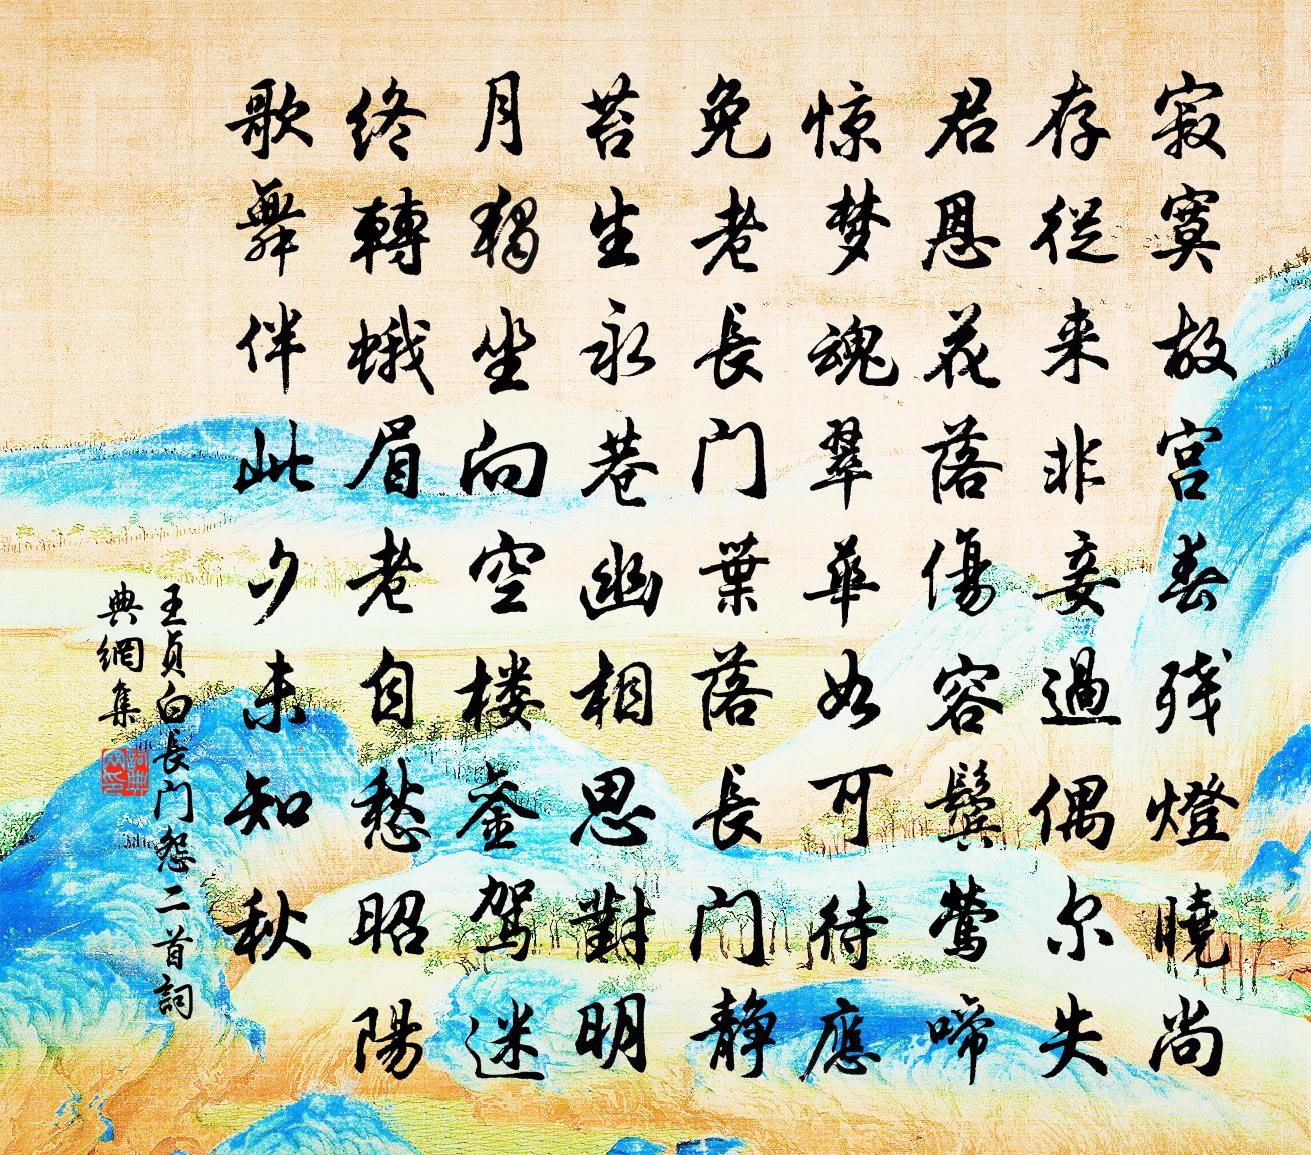 寂寞故宮春残燈曉尚
存從来非妾過偶尔失
君恩花落傷容鬓鶯啼
惊梦魂翠華如可待應
免老長门葉落長门静
苔生永巷幽相思對明
月獨坐向空楼銮駕迷
终轉蛾眉老自愁昭陽
歌舞伴此夕未知秋
王貞白長门怨二首詞
典網集